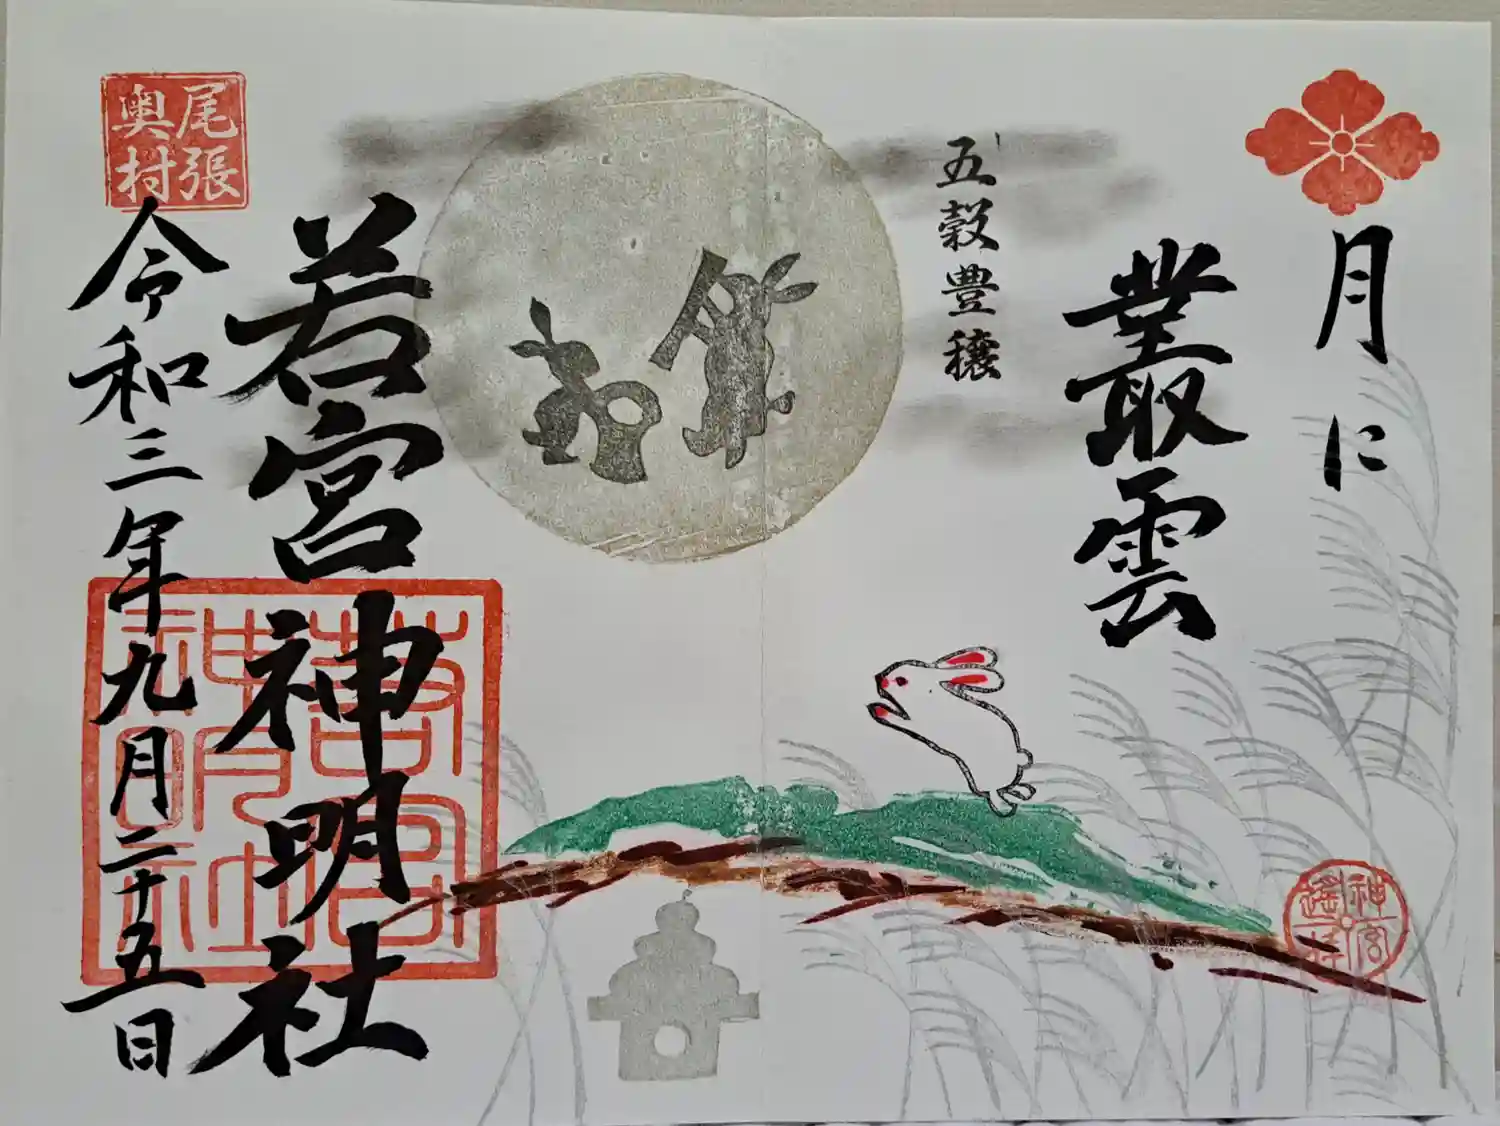 月に
叢雲
五穀豊穣
若宮神明社
令和三年九月二十五日
尾張
奥村
神宮
遙拝
若宮
神明社